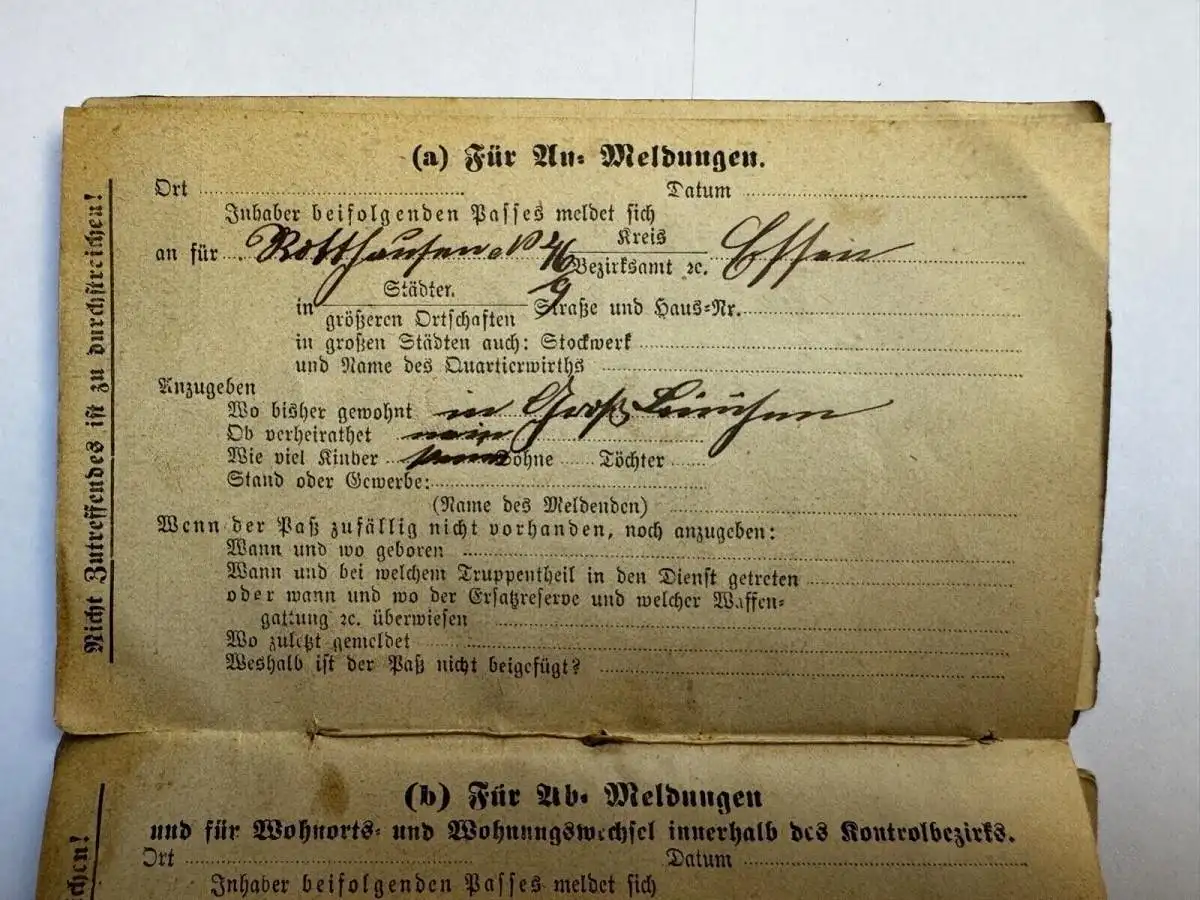 (a) Für An- Meldungen.
Ort Datum
Inhaber beifolgenden Passes meldet sich
an für Rotthausen Kreis Essen
Bezirksamt ꝛc.
in Städten 9
größeren Ortschaften Straße und Haus-Nr.
in großen Städten auch: Stockwerk
und Name des Quartierwirths
Anzugeben
Wo bisher gewohnt in Groß
Ob verheirathet nein
Wie viel Kinder Söhne Töchter
Stand oder Gewerbe:
(Name des Meldenden)
Wenn der Paß zufällig nicht vorhanden, noch anzugeben:
Wann und wo geboren
Wann und bei welchem Truppentheil in den Dienst getreten
oder wann und wo der Ersatzreserve und welcher Waffen-
gattung ꝛc. überwiesen
Wo zuletzt gemeldet
Weshalb ist der Paß nicht beigefügt?
Nicht Zutreffendes ist zu durchstreichen!
(b) Für Ab- Meldungen
und für Wohnorts- und Wohnungswechsel innerhalb des Kontrolbezirks.
Ort Datum
Inhaber beifolgenden Passes meldet sich